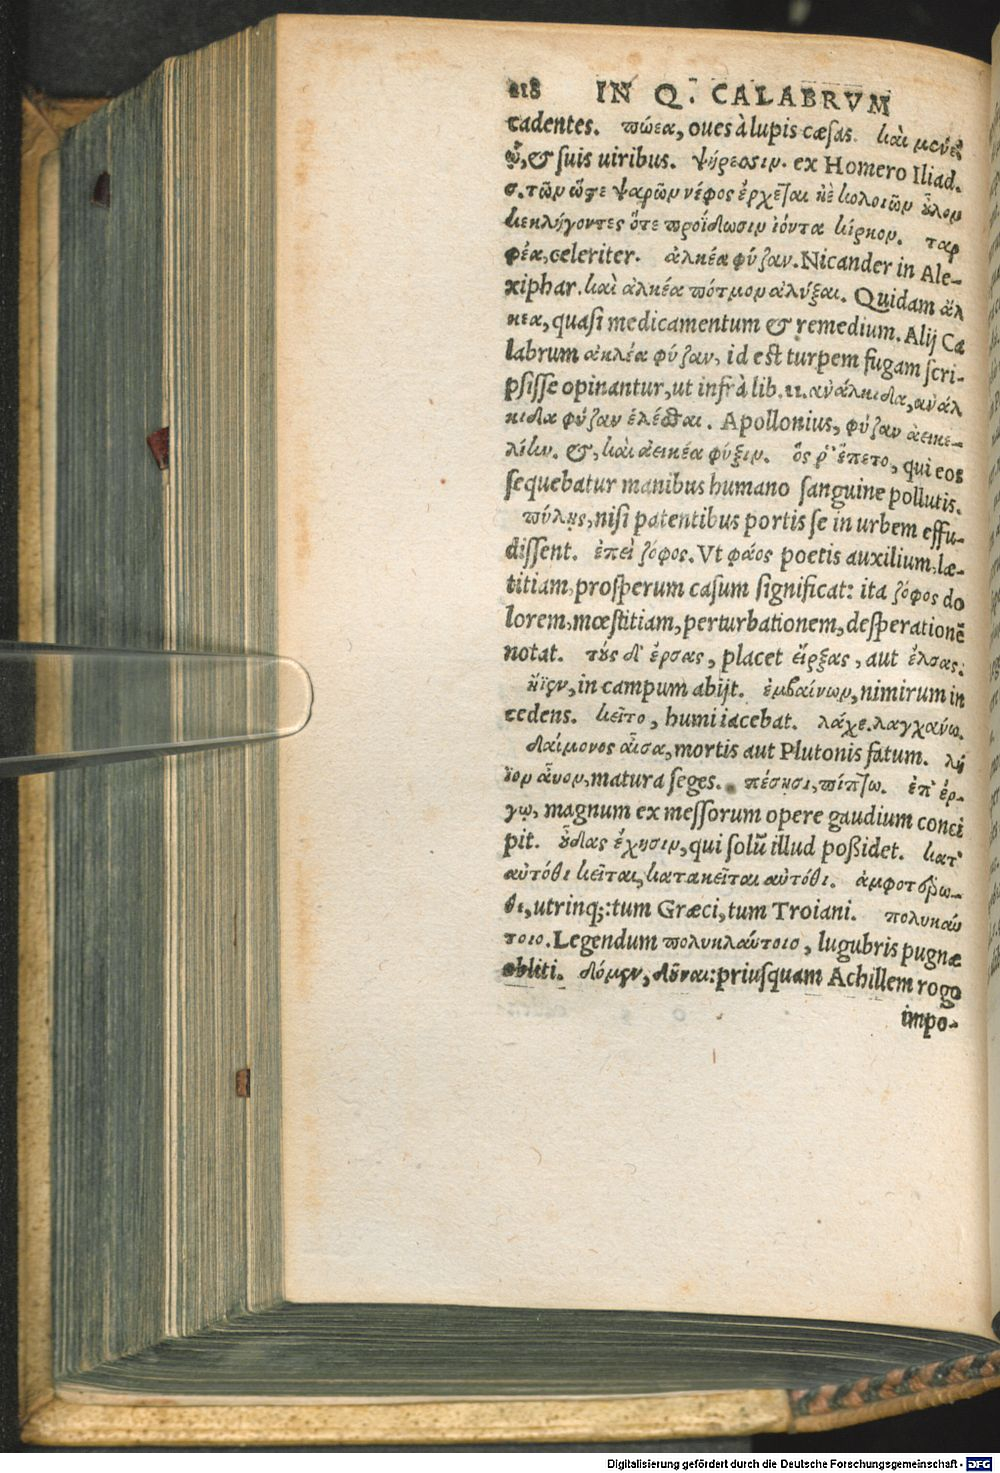 218 IN Q. CALABRVM
cadentes. πώεα, oues à lupis cæsas. καὶ μενεῖ
ᾧ, & suis uiribus. ψήρεσσιν. ex Homero Iliad.
σ. τῶν ὥστε ψαρῶν νέφος ἔρχεται ἠὲ κολοιῶν οὖλον
κεκλήγοντες ὅτε προΐδωσιν ἰόντα κίρκον. ταρ
φέα, celeriter. ἀλκέα φύζαν. Nicander in Ale-
xiphar. καὶ ἀλκέα πότμον ἀλύξαι. Quidam ἄλ
κεα, quasi medicamentum & remedium. Alij Ca
labrum ἀκλέα φύζαν, id est turpem fugam scri-
psisse opinantur, ut infrà lib. 11. ἀνάλκιδα, ἀνάλ
κιδα φύζαν ἑλέσθαι. Apollonius, φύζαν ἀεικε-
λίην. &, καὶ ἀεικέα φύξιν. ὅς ῥ' ἕπετο, qui eos
sequebatur manibus humano sanguine pollutis.
πύλῃς, nisi patentibus portis se in urbem effu-
dissent. ἐπεὶ ζόφος. Vt φάος poetis auxilium, læ-
titiam, prosperum casum significat: ita ζόφος do
lorem, mœstitiam, perturbationem, desperationē
notat. τοὺς δ' ἔρσας, placet εἴρξας, aut ἔλσας:
ἤϊεν, in campum abijt. ἐμβαίνων, nimirum in
cedens. κεῖτο, humi iacebat. λάχε. λαγχάνω.
δαίμονος αἶσα, mortis aut Plutonis fatum. λή
ϊον αὖον, matura seges. πέσῃσι, πίπτω. ἐπ' ἔρ-
γῳ, magnum ex messorum opere gaudium conci
pit. οὖδας ἔχῃσιν, qui solū illud poßidet. κατ'
αὐτόθι κεῖται, κατακεῖται αὐτόθι. ἀμφοτέρω-
θι, utrinq;: tum Græci, tum Troiani. πολυκαύ
τοιο. Legendum πολυκλαύτοιο, lugubris pugnæ
obliti. δόμεν, δοῦναι: priusquam Achillem rogo
impo-
Digitalisierung gefördert durch die Deutsche Forschungsgemeinschaft - DFG